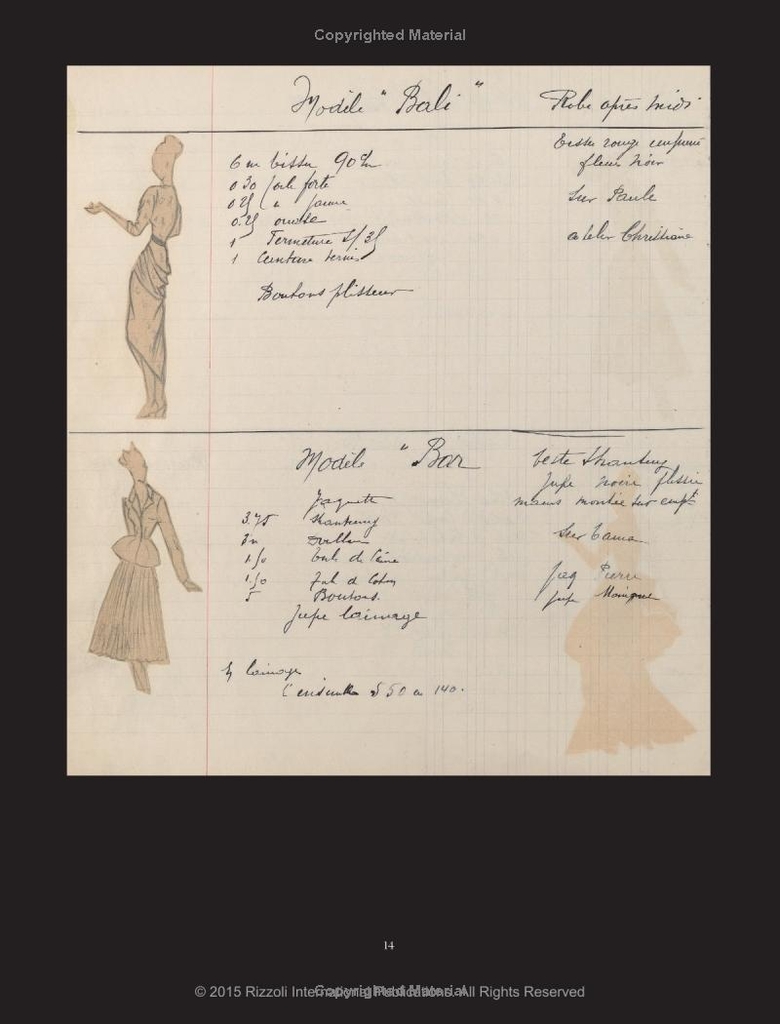 Copyrighted Material
Modèle "Bali" Robe après midi
6 m tissu 90
0 30 toile forte
0.25 "
0.25 ouate
1 Fermeture
1 Ceinture vernis
Boutons plisseur
Tissu rouge imprimé
fleurs noir
sur Paule
atelier Christiane
Modèle "Bar
Jaquette
3.75 Shantung
1.50 Tul de
1.50 Tul de Coton
5 Boutons.
Jupe lainage
lainage
L'ensemble 550 a 140.
Veste Shantung
Jupe noire plissée
montée sur
sur Tania
Jaq Pierre
jupe Monique
14
© 2015 Rizzoli International Publications. All Rights Reserved
Copyrighted Material